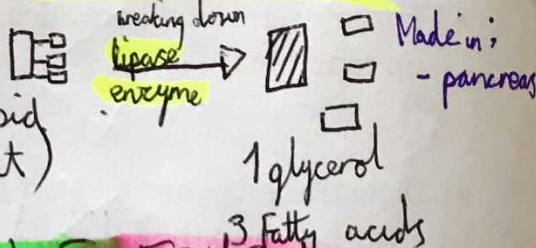 breaking down
lipase
enzyme
Made in;
- pancreas
t)
1 glycerol
3 Fatty acids